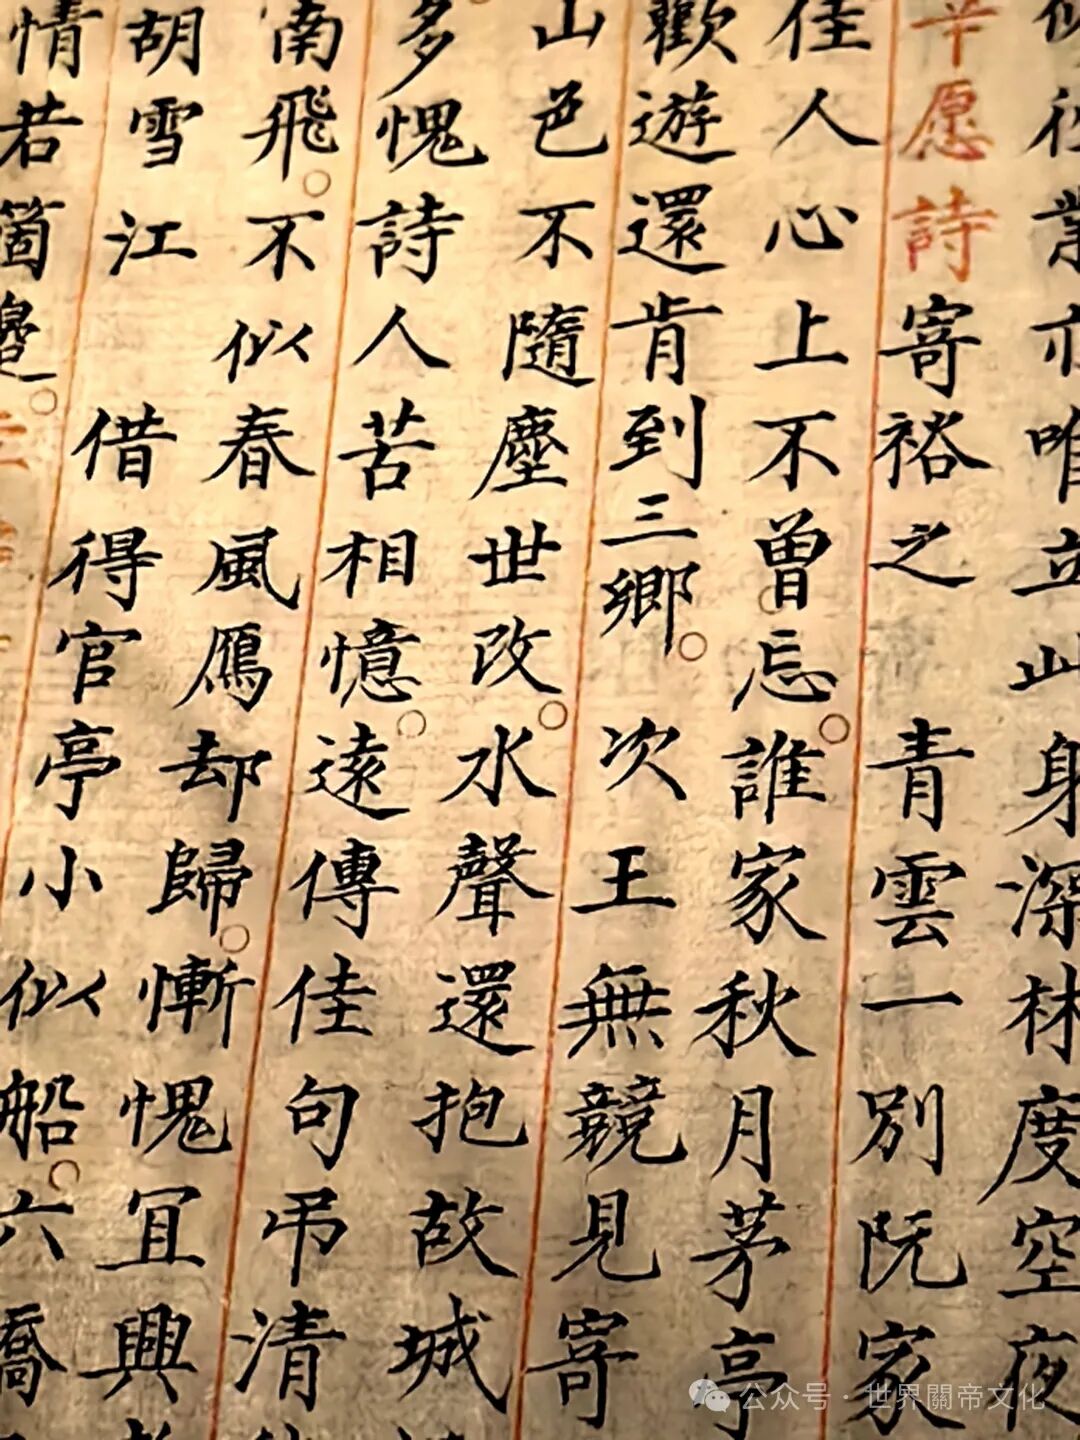 業亦唯立此身深林度空夜
辛愿詩 寄裕之 青雲一別阮家
佳人心上不曾忘。誰家秋月茅亭
歡遊還肯到三鄉。 次王無競見寄
山色不隨塵世改。水聲還抱故城
多愧詩人苦相憶。遠傳佳句吊清
南飛。不似春風鴈却歸。慚愧宜興
胡雪江 借得官亭小似船。六橋
情若箇邊。
公众号·世界關帝文化